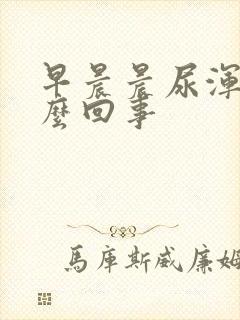 早晨晨尿渾
麼回事
馬庫斯威廉姆